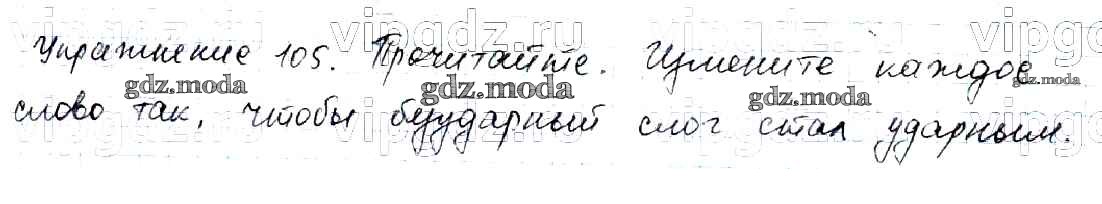 vipgdz.ru vipgdz.ru vipgdz
Упражнение 105. Прочитайте. Измените каждое
gdz.moda gdz.moda gdz.moda gdz.moda
слово так, чтобы безударный слог стал ударным.
vipgdz.ru vipgdz.ru vipgdz